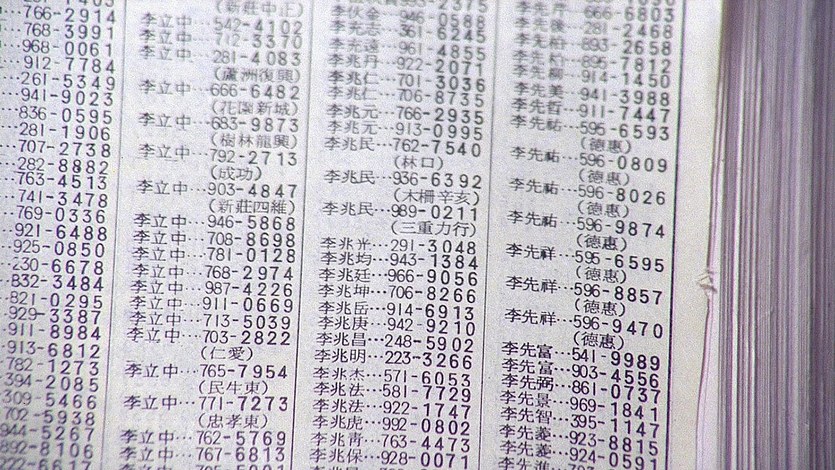 766-2914
768-3991
968-0061
912-7784
261-5349
941-9023
836-0595
281-1906
707-2738
282-8882
763-4513
741-3478
769-0336
921-6488
925-0850
230-6678
832-3484
821-0295
929-3387
911-8984
913-6812
782-1273
394-2085
309-5466
702-5938
944-5267
892-8106
(新莊中正)
李立中…542-4102
李立中…712-3370
李立中…281-4083
(蘆洲復興)
李立中…666-6482
(花園新城)
李立中…683-9873
(樹林龍興)
李立中…792-2713
(成功)
李立中…903-4847
(新莊四維)
李立中…946-5868
李立中…708-8698
李立中…781-0128
李立中…768-2974
李立中…987-4226
李立中…911-0669
李立中…713-5039
李立中…703-2822
(仁愛)
李立中…765-7954
(民生東)
李立中…771-7273
(忠孝東)
李立中…762-5769
李立中…767-6813
李伙金…946-0588
李充志…361-6245
李充遠…961-4855
李兆丹…922-2071
李兆仁…701-3036
李兆仁…706-8735
李兆元…766-2935
李兆元…913-0995
李兆民…762-7540
(林口)
李兆民…936-6392
(木柵辛亥)
李兆民…989-0211
(三重力行)
李兆光…291-3048
李兆均…943-1384
李兆廷…966-9056
李兆坤…706-8266
李兆岳…914-6913
李兆庚…942-9210
李兆昌…248-5902
李兆明…223-3266
李兆杰…571-6053
李兆法…581-7729
李兆法…922-1747
李兆虎…992-0802
李兆青…763-4473
李兆保…928-0071
李先芹…666-6803
李先後…281-2468
李先柏…893-2658
李先柏…895-7812
李先柳…914-1450
李先美…941-3988
李先哲…911-7447
李先祐…595-6593
(德惠)
李先祐…596-0809
(德惠)
李先祐…596-8026
(德惠)
李先祐…596-9874
(德惠)
李先祥…595-6595
(德惠)
李先祥…596-8857
(德惠)
李先祥…596-9470
(德惠)
李先富…541-9989
李先富…903-4556
李先弼…861-0737
李先景…969-1841
李先智…395-1147
李先菱…923-8815
李先菱…924-0591